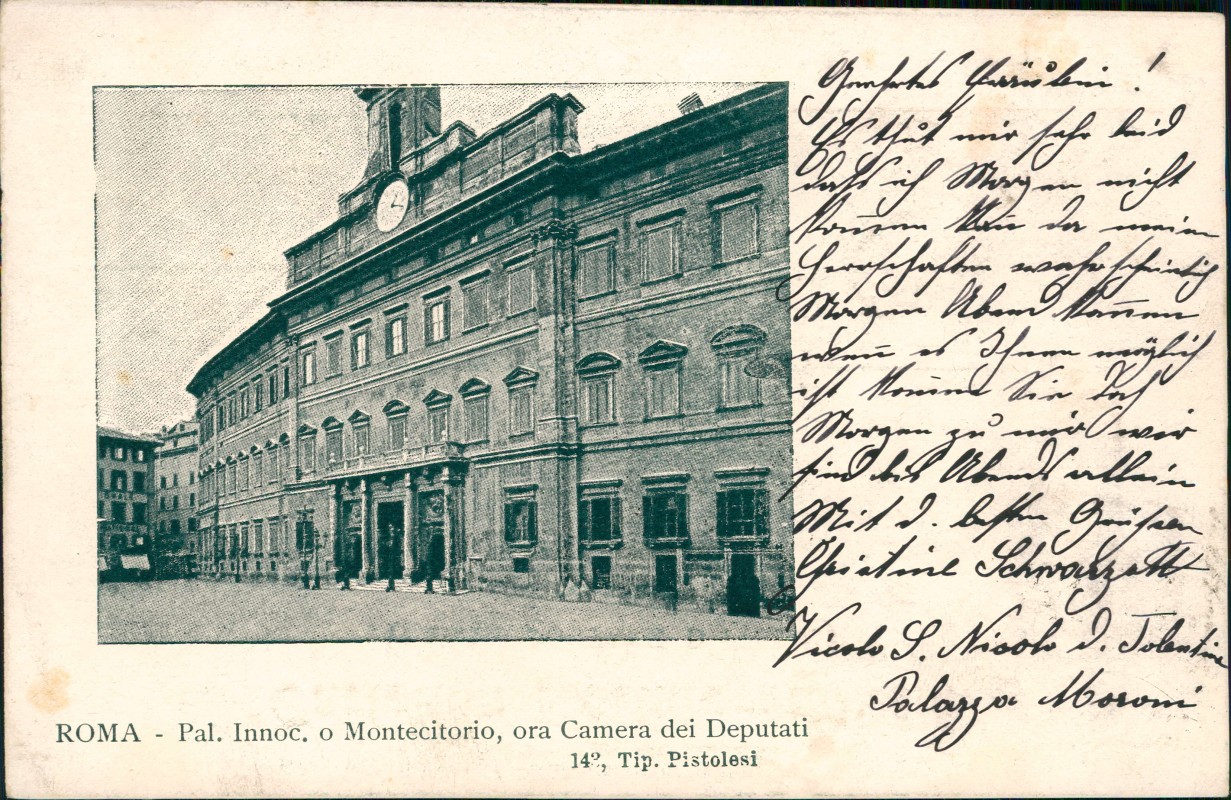 Geehrtes Fräulein!
Es thut mir sehr leid
daß ich Morgen nicht
kom̅en kan̅ da meine
Herrschaften wahrscheinlich
Morgen Abend
wen̅ es Ihnen möglich
ist kom̅en Sie doch
Morgen zu mir wir
sind des Abends allein
Mit d. besten Grüßen
Christine
Vicolo S. Nicolo d. Tolentino
Palazzo Moroni
ROMA - Pal. Innoc. o Montecitorio, ora Camera dei Deputati
Tip. Pistolesi